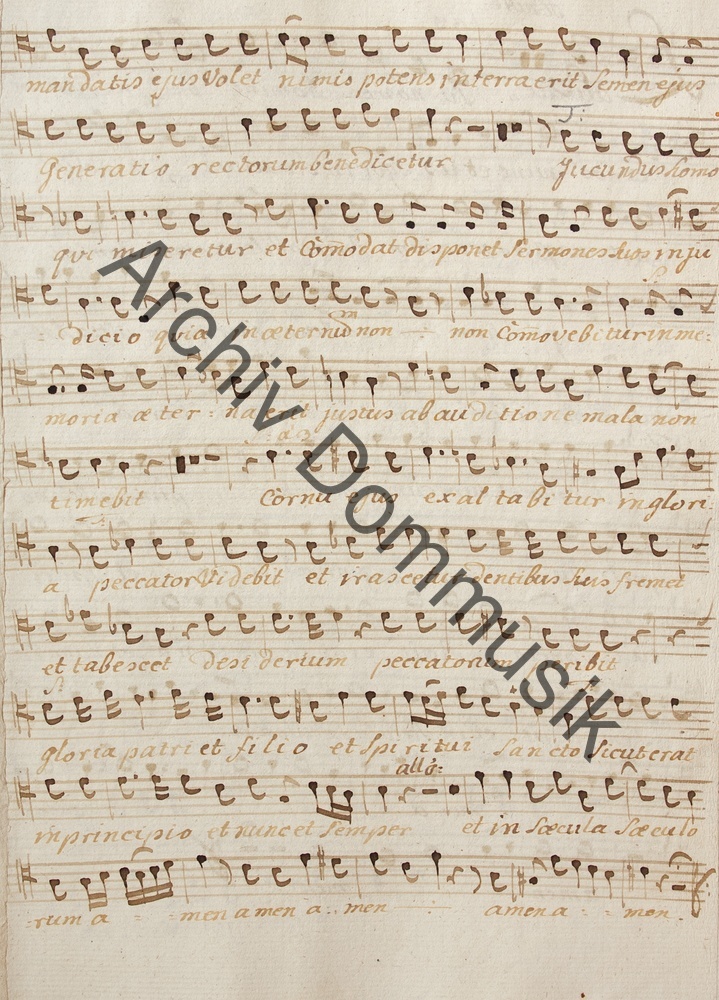 mandatis ejus Volet nimis potens in terra erit Semen ejus
J:
Generatio rectorum benedicetur Jucundus homo
qui miseretur et Com̄odat disponet Sermones suos in ju
: dicio quia in æternum non — non Com̄ovebitur in me:
moria æter : na erit justus ab auditione mala non
à 2
timebit Cornu ejus exaltabitur in glori:
a peccator Videbit et irascetur dentibus suis fremet
et tabescet desiderium peccatorum peribit
gloria patri et filio et Spiritui Sancto Sicut erat
allō:
in principio et nunc et Semper et in Sæcula Sæculo
-rum a : men amen a : men — amen a : : men.
Archiv Dommusik